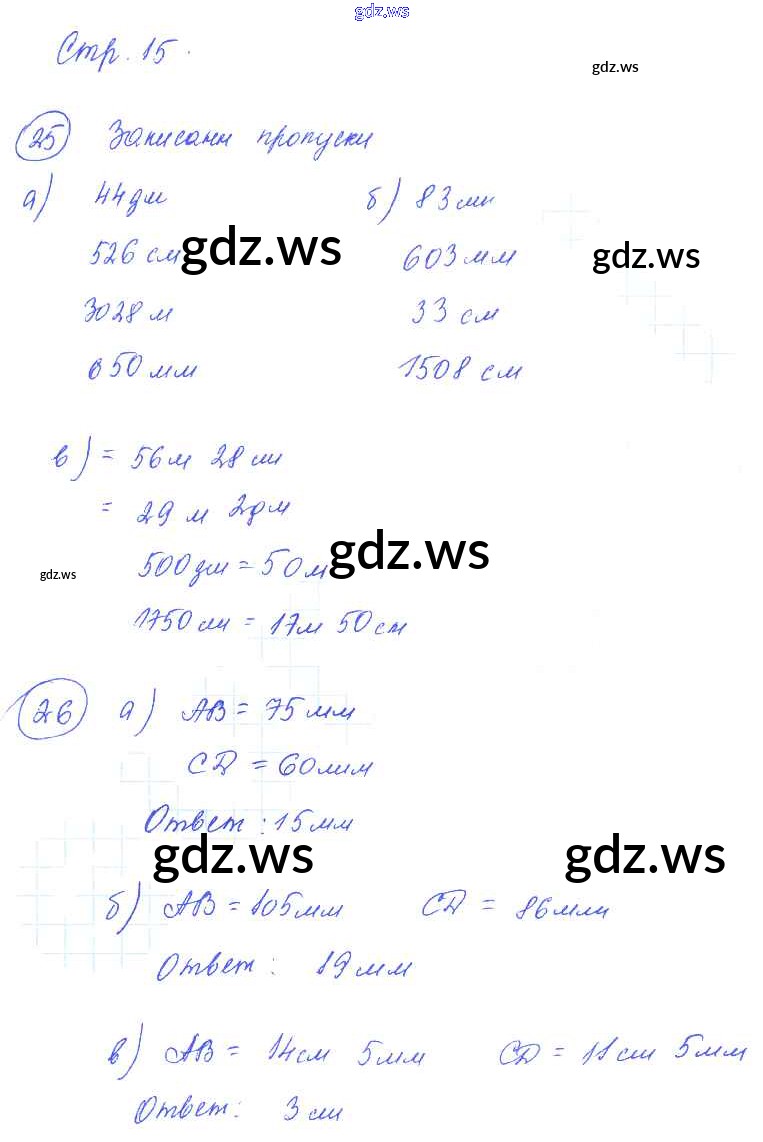 gdz.ws
Стр. 15.
gdz.ws
25 Записани пропуски
а) 44дм б) 83 см
526 см gdz.ws 603 мм gdz.ws
3028 м 33 см
650 мм 1508 см
в) = 56м 28 см
= 29 м 2дм
gdz.ws 500дм = 50м gdz.ws
1750см = 17м 50см
26 а) AB = 75мм
CD = 60мм
Ответ: 15мм
gdz.ws gdz.ws
б) AB = 105мм CD = 86мм
Ответ: 19мм
в) AB = 14см 5мм CD = 11см 5мм
Ответ: 3см